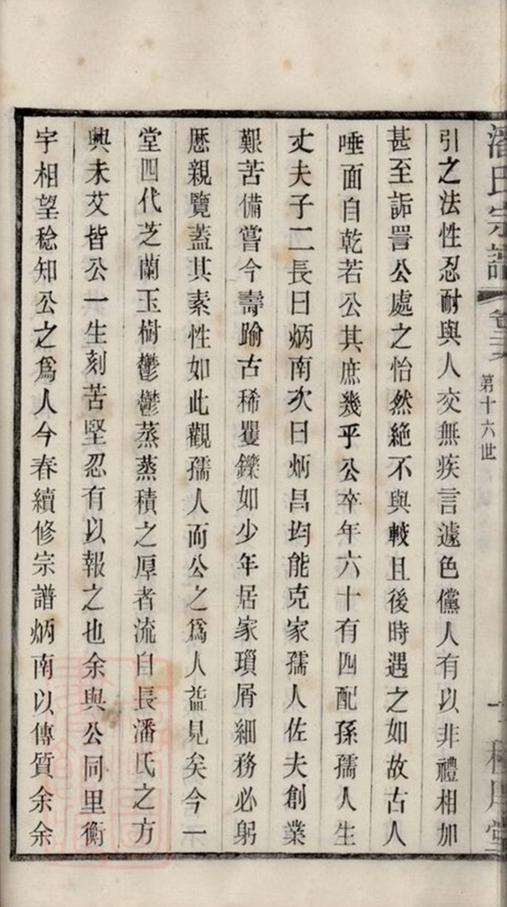 潘氏宗譜
卷三六
第十六世
引之法性忍耐與人交無疾言遽色儻人有以非禮相加
甚至詬詈公處之怡然絶不與較且後時遇之如故古人
唾面自乾若公其庶幾乎公卒年六十有四配孫孺人生
丈夫子二長曰炳南次曰炳昌均能克家孺人佐夫創業
艱苦備嘗今壽踰古稀矍鑠如少年居家瑣屑細務必躬
厯親覽蓋其素性如此觀孺人而公之爲人益見矣今一
堂四代芝蘭玉樹鬱鬱蒸蒸積之厚者流自長潘氏之方
興未艾皆公一生刻苦堅忍有以報之也余與公同里衡
宇相望稔知公之爲人今春續修宗譜炳南以傳質余余